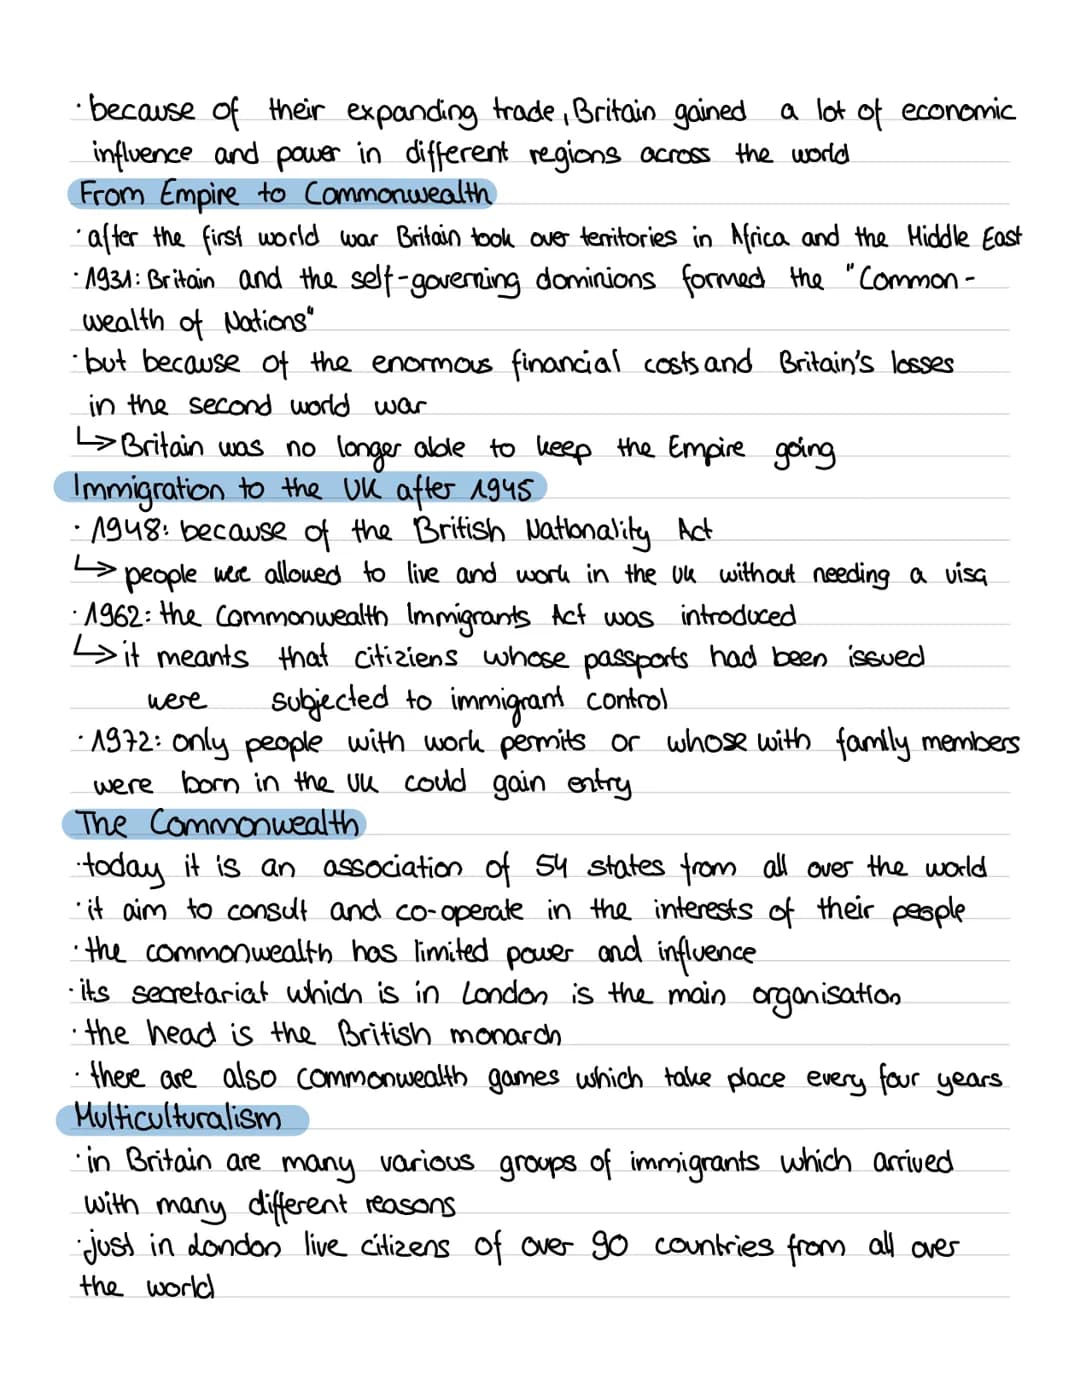 · because of their expanding trade, Britain gained a lot of economic
influence and power in different regions across the world
From Empire to Commonwealth
· after the first world war Britain took over territories in Africa and the Middle East
· 1931: Britain and the self-governing dominions formed the "Common-
wealth of Nations"
· but because of the enormous financial costs and Britain's losses
in the second world war
↳ Britain was no longer able to keep the Empire going
Immigration to the UK after 1945
· 1948: because of the British Nationality Act
↳ people were allowed to live and work in the UK without needing a visa
· 1962: the Commonwealth Immigrants Act was introduced
↳ it meants that citiziens whose passports had been issued
were subjected to immigrant control
· 1972: only people with work permits or whose with family members
were born in the UK could gain entry
The Commonwealth
· today it is an association of 54 states from all over the world
· it aim to consult and co-operate in the interests of their people
· the commonwealth has limited power and influence
· its secretariat which is in London is the main organisation
· the head is the British monarch
· there are also commonwealth games which take place every four years
Multiculturalism
· in Britain are many various groups of immigrants which arrived
with many different reasons
· just in London live citizens of over 90 countries from all over
the world